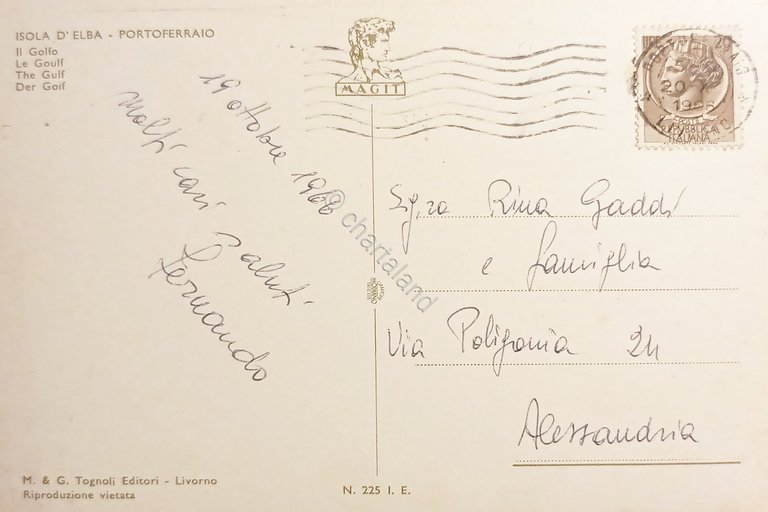 ISOLA D'ELBA - PORTOFERRAIO
Il Golfo
Le Goulf
The Gulf
Der Golf
19 ottobre 1966
Molti cari saluti
Fernando
MAGIT
20
1966
REPUBBLICA
ITALIANA
Sig.ra Rina Gaddi
e famiglia
Via Poligonia 24
Alessandria
© chartaland
M. & G. Tognoli Editori - Livorno
Riproduzione vietata
N. 225 I. E.